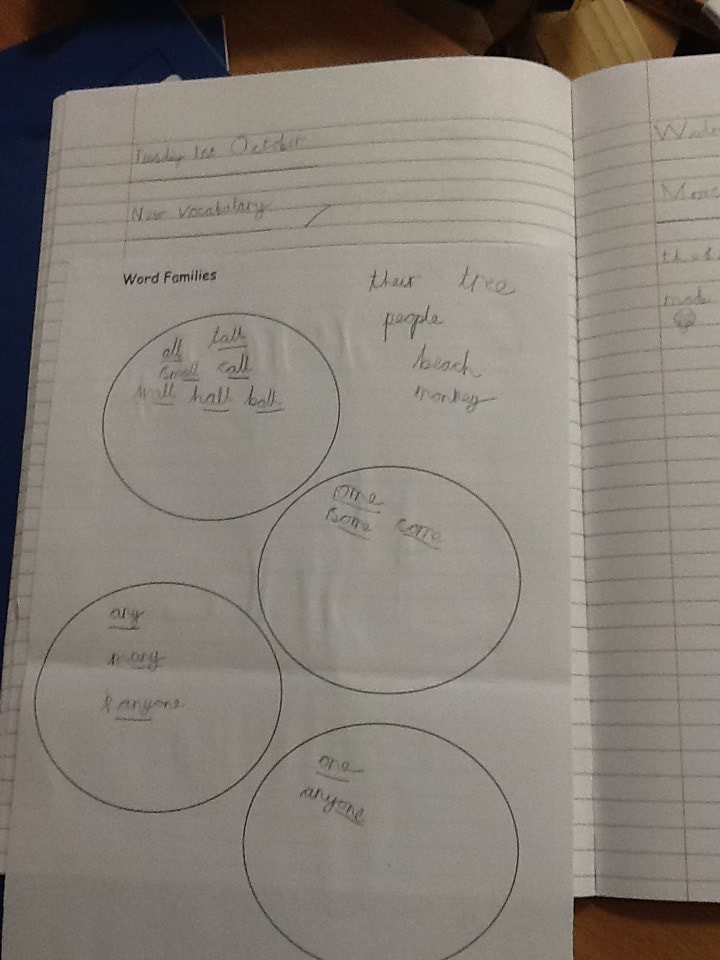 Tuesday 1st October
New Vocabulary
Word Families
their tree
people
beach
monkey
all talk
small call
wall hall ball
ome
some come
any
many
anyone
one
anyone